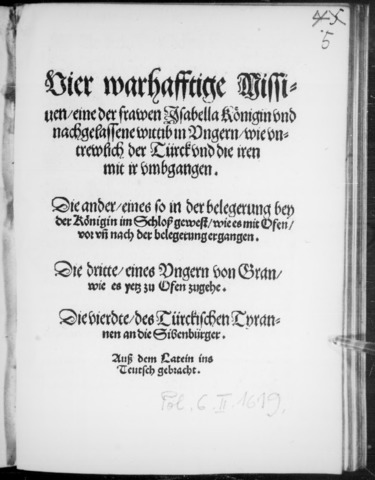 5
Vier warhafftige Missi-
uen/eine der frawen Jsabella Königin vnd
nachgelassene wittib in Vngern/wie vn-
trewlich der Türck vnd die iren
mit ir vmbgangen.
Die ander/eines so in der belegerung bey
der Königin im Schloß gewest/wie es mit Ofen/
vor vñ nach der belegerung ergangen.
Die dritte/eines Vngern von Gran/
wie es yetz zu Ofen zugehe.
Die vierdte/des Türckischen Tyran-
nen an die Sibenbürger.
Auß dem Latein ins
Teutsch gebracht.
Pol. 6. II. 1619.